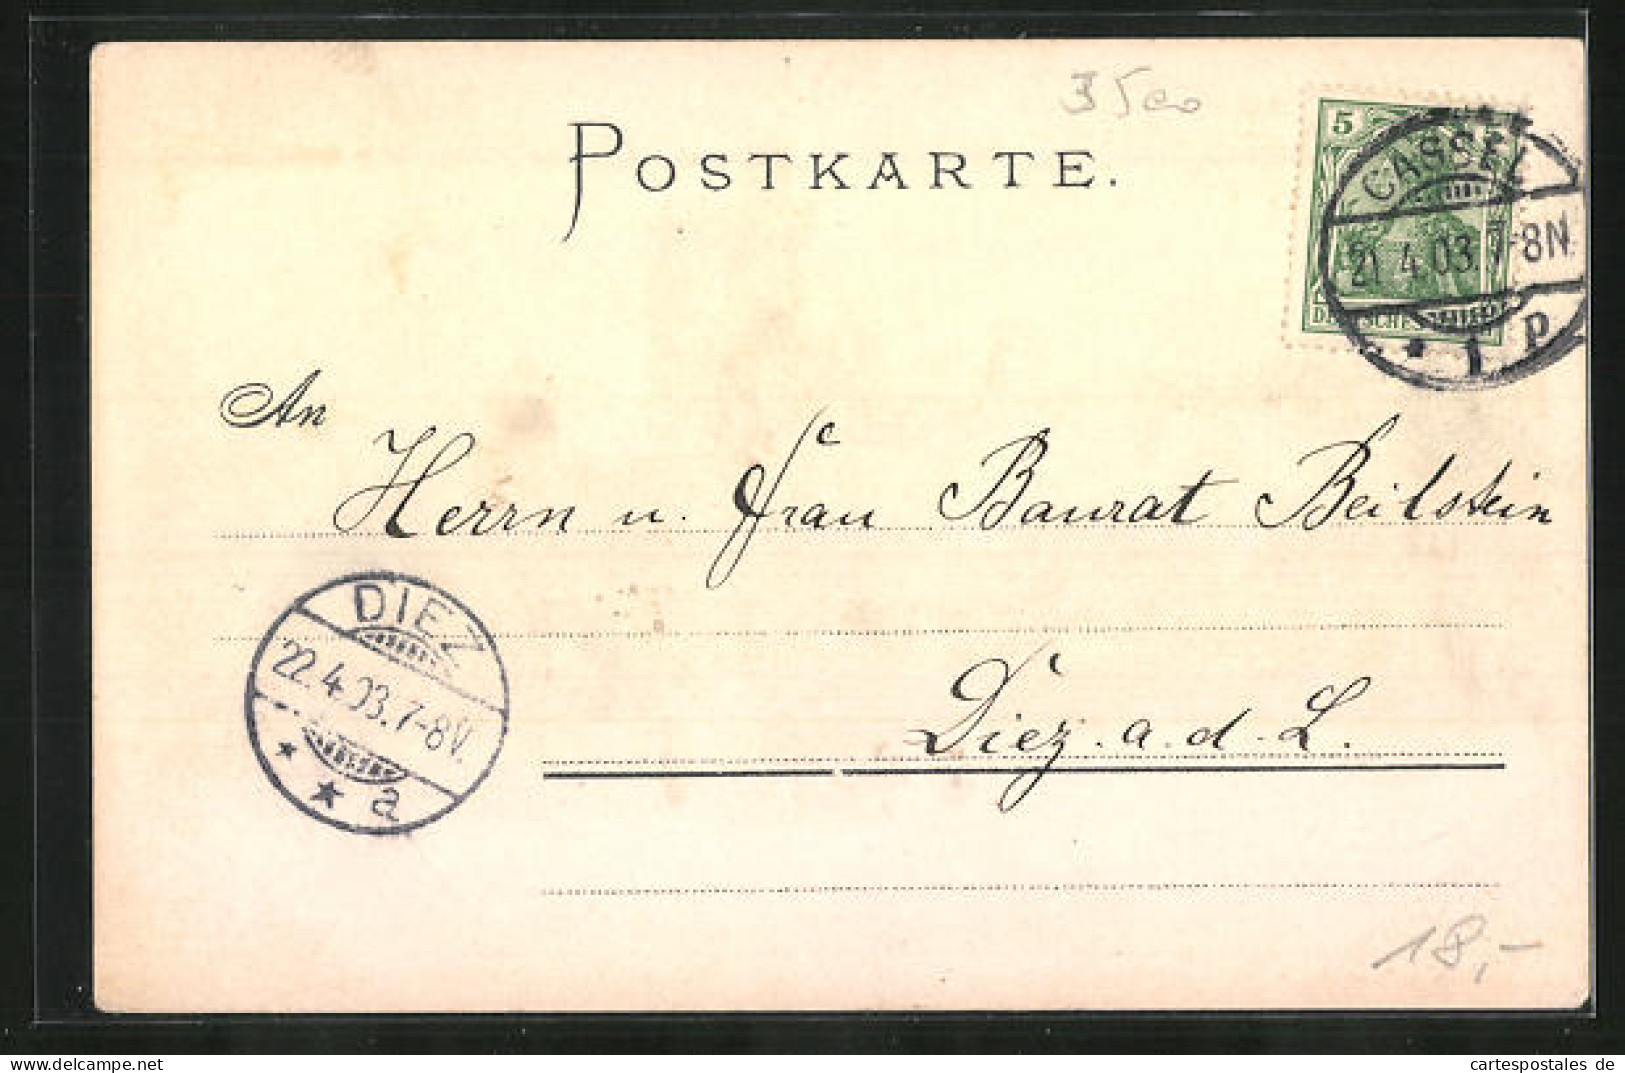 3500
POSTKARTE.
5
CASSEL
21.4.03.7-8N.
* 1 P
An
Herrn u. Frau Baurat Beilstein
DIEZ
22.4.03.7-8V.
* * a
Diez. a. d. L.
18,-
cartespostales de